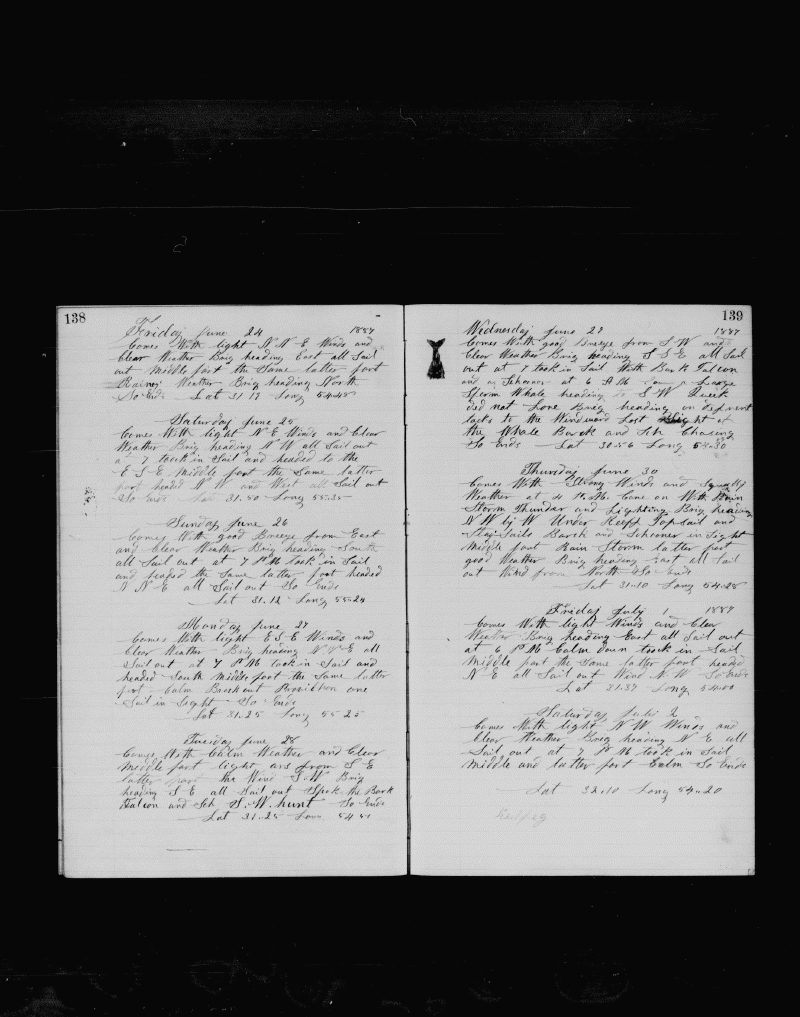 138
Friday June 24 1887
Comes With light N N E Winds and
Clear Weather Brig heading East all Sail
out Middle part the Same latter part
Rainey Weather Brig heading North
So Ends Lat 31.17 Long 54.48
Saturday June 25
Comes With light N E Winds and Clear
Weather Brig heading N W all Sail out
at 7 took in Sail and headed to the
E S E Middle part the Same latter
part headed N W and West all Sail out
So Ends Lat 31.50 Long 55.35
Sunday June 26
Comes With good Breeze from East
and Clear Weather Brig heading South
all Sail out at 7 P M took in Sail
and the Same latter part headed
N N E all Sail out So Ends
Lat 31.12 Long 55.24
Monday June 27
Comes With light E S E Winds and
Clear Weather Brig heading all
Sail out at 7 P M took in Sail and
headed South Middle part the Same latter
part Calm Broke out one
Sail in Sight So Ends
Lat 31.25 Long 55.25
Tuesday June 28
Comes With Calm Weather and Clear
Middle part light airs from S E
latter part the Wind S W Brig
heading S E all Sail out Spok the Bark
Falcon and Sch S. W. hunt So Ends
Lat 31.25 Long 54.51
139
Wednesday June 29 1887
Comes With good Breeze from S W and
Clear Weather Brig heading S S E all Sail
out at 7 took in Sail With Bark Falcon
and Schooner at 6 A M Saw a Large
Sperm Whale heading S W Quick
did not Lore Brig heading on
tacks to the Windward Lost Sight of
the Whale Bark and Sch Chasing
So Ends Lat 30.56 Long 54.30
Thursday June 30
Comes With Strong Winds and Squally
Weather at 4 P. M. Came on With Rain
Storm Thunder and Lighting Brig heading
N W by W Under Topsail and
Stay Sails Barck and Schooner in Sight
Middle part Rain Storm latter part
good Weather Brig heading East all Sail
out Wind from North So Ends
Lat 31.10 Long 54.28
Friday July 1 1887
Comes With light Winds and Clear
Weather Brig heading East all Sail out
at 6 P M Calm down took in Sail
Middle part the Same latter part headed
N E all Sail out Wind N W So Ends
Lat 31.37 Long 54.00
Saturday July 2
Comes With light N W Winds and
Clear Weather Brig heading N E all
Sail out at 7 P M took in Sail
Middle and latter part Calm So Ends
Lat 32.10 Long 54.20